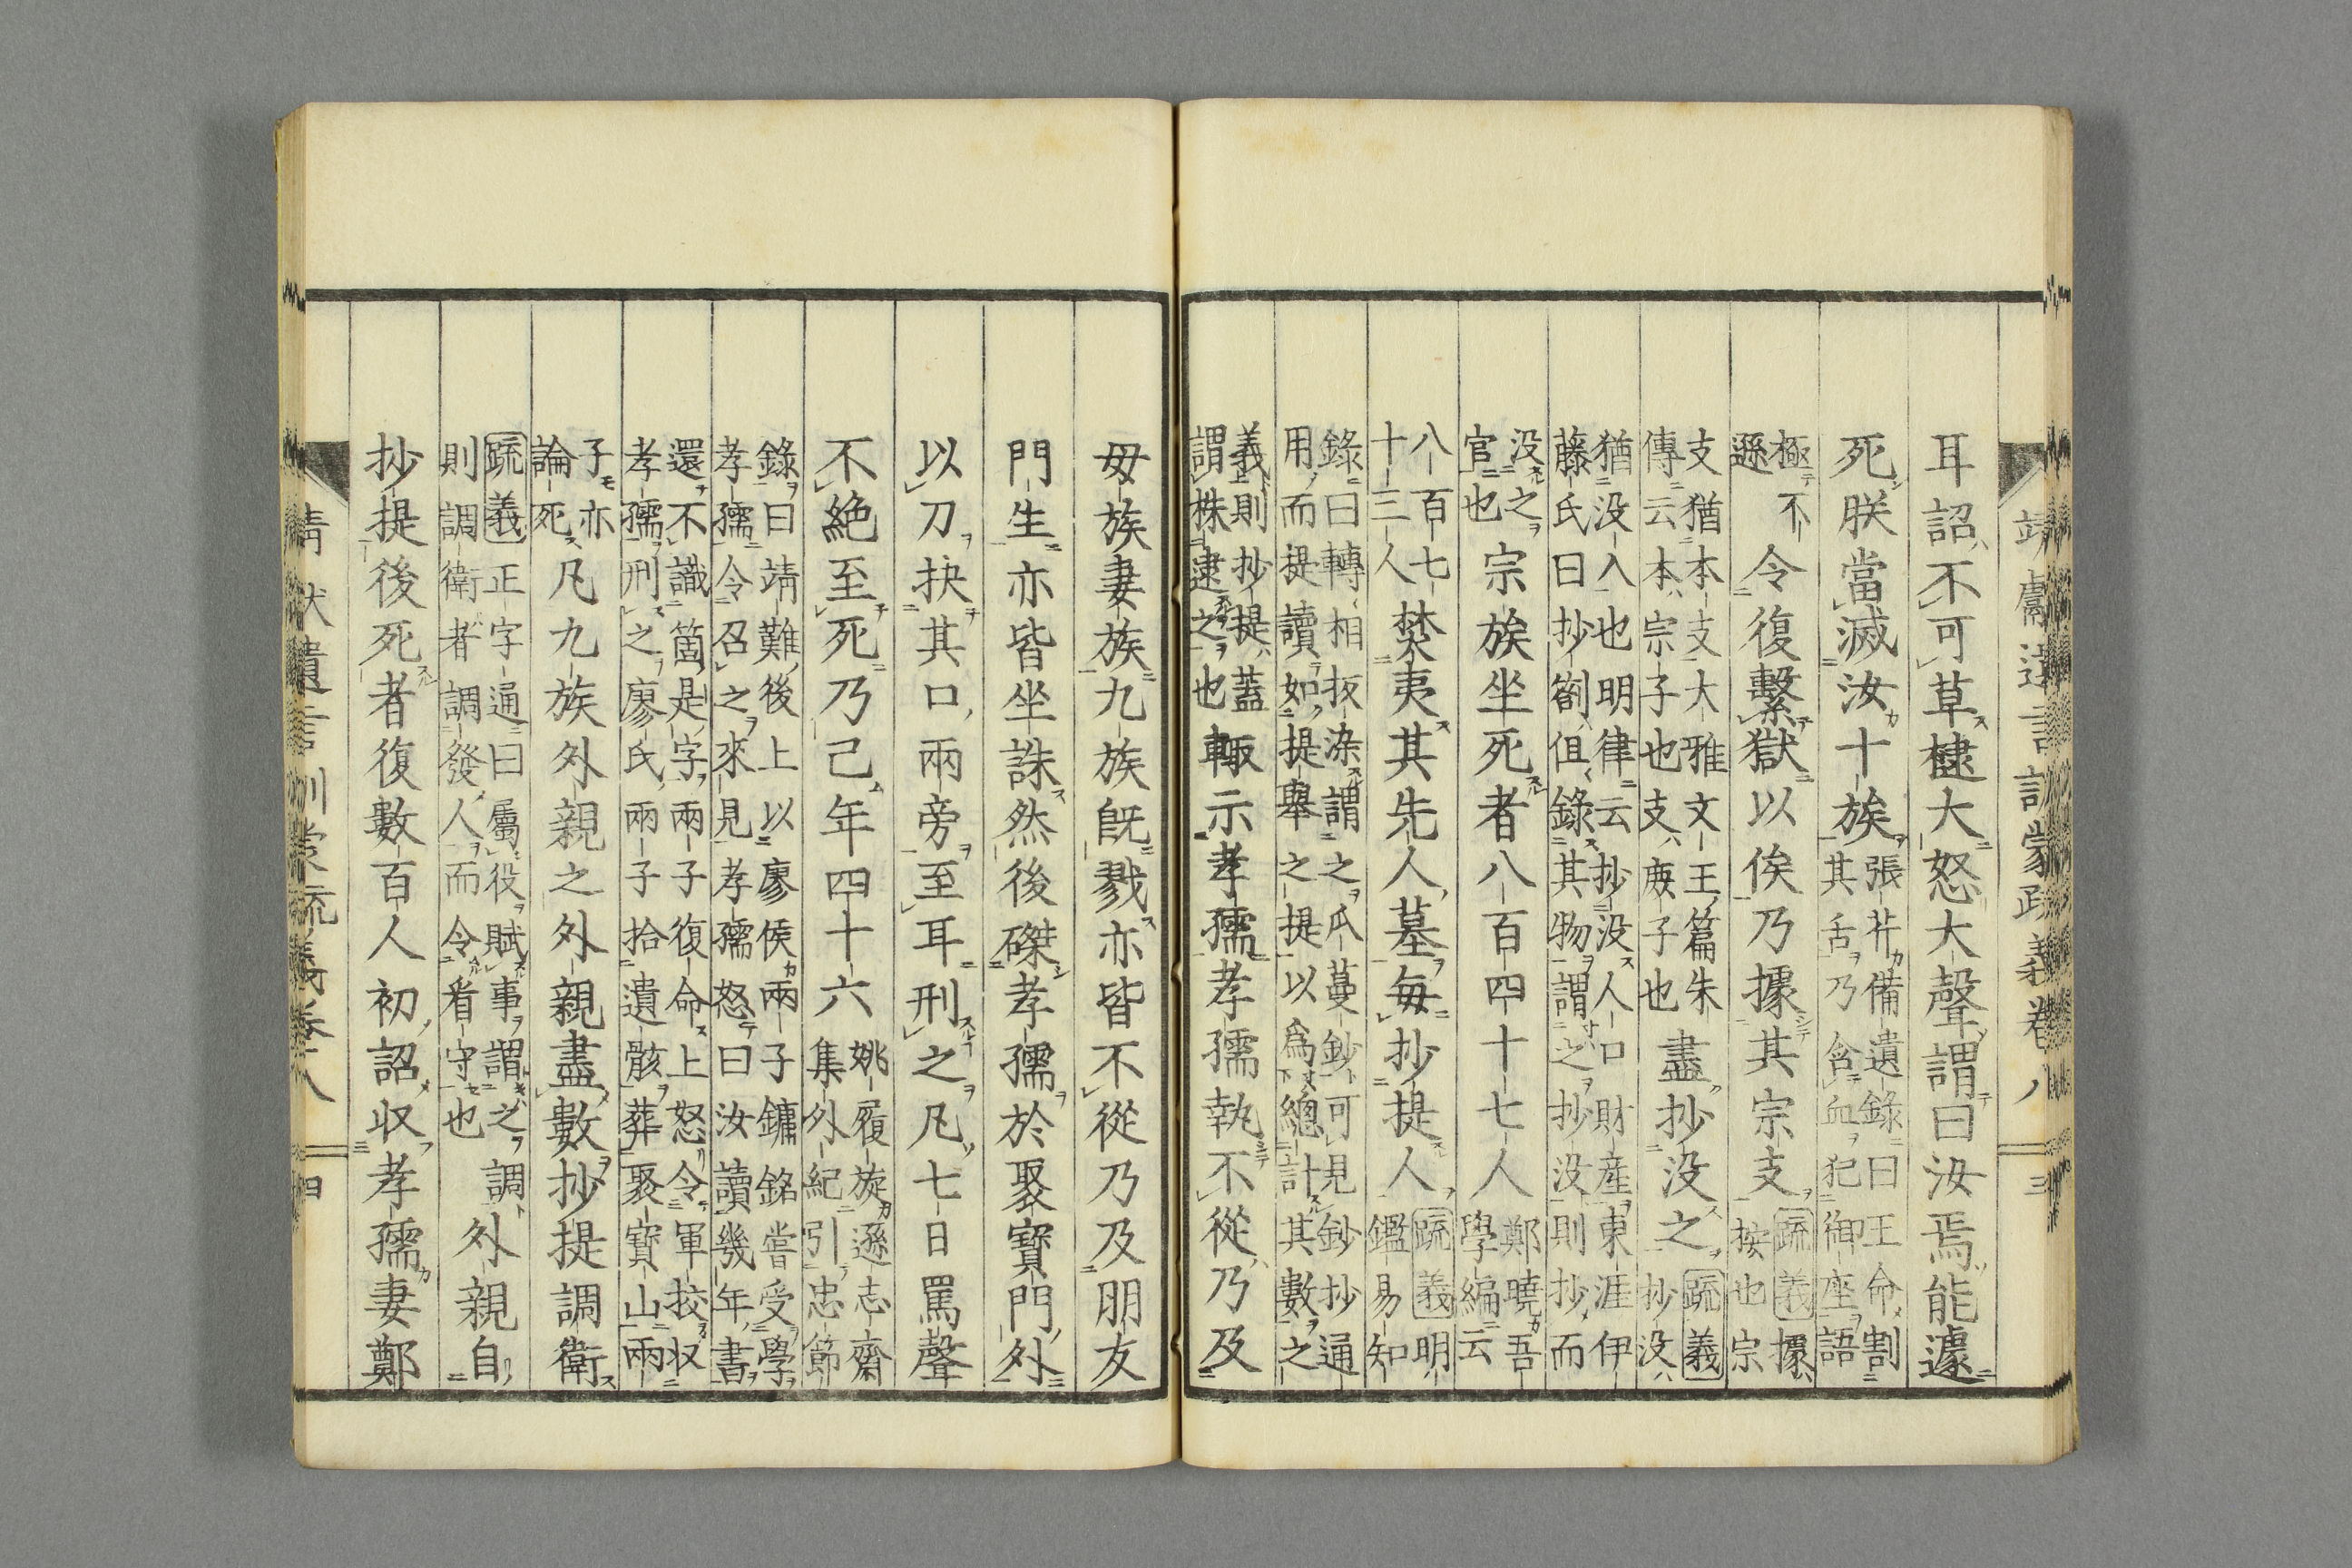 靖獻遺言訓蒙疏義卷八　三
耳詔不可草棣大怒大聲謂曰汝焉能遽
死朕當滅汝十族
張芹備遺錄曰王命割
其舌乃含血犯御座語
極不
遜
令復繫獄以俟乃據其宗支
疏義據
按也宗
支猶本支大雅文王篇朱
傳云本宗子也支庶子也
盡抄没之
疏義
抄没
猶没入也明律云抄没人口財産東涯伊
藤氏曰抄劄俱錄其物謂之抄没則抄而
没之
官也
宗族坐死者八百四十七人
鄭曉吾
學編云
八百七
十三人
焚夷其先人墓毎抄提人
疏義明
鑑易知
錄曰轉相扳染謂之瓜蔓鈔可見鈔抄通
用而提讀如提舉之提以爲總計其數之
義則抄提蓋
謂株逮之也
輙示孝孺孝孺執不從乃及
毋族妻族九族既戮亦皆不從乃及朋友
門生亦皆坐誅然後磔孝孺於聚寶門外
以刀抉其口兩旁至耳刑之凡七日罵聲
不絶至死乃己年四十六
姚履旋遜志齋
集外紀引忠節
錄曰靖難後上以廖侯兩子鏞銘嘗受學
孝孺令召之來見孝孺怒曰汝讀幾年書
還不識箇是字兩子復命上怒令軍挍収
孝孺刑之廖氏兩子拾遺骸葬聚寶山兩
子亦
論死
凡九族外親之外親盡數抄提調衛
疏義正字通曰屬役賦事謂之調
則調衛者調發人而令看守也
外親自
抄提後死者復數百人初詔収孝孺妻鄭
靖獻遺言訓蒙疏義卷八　四